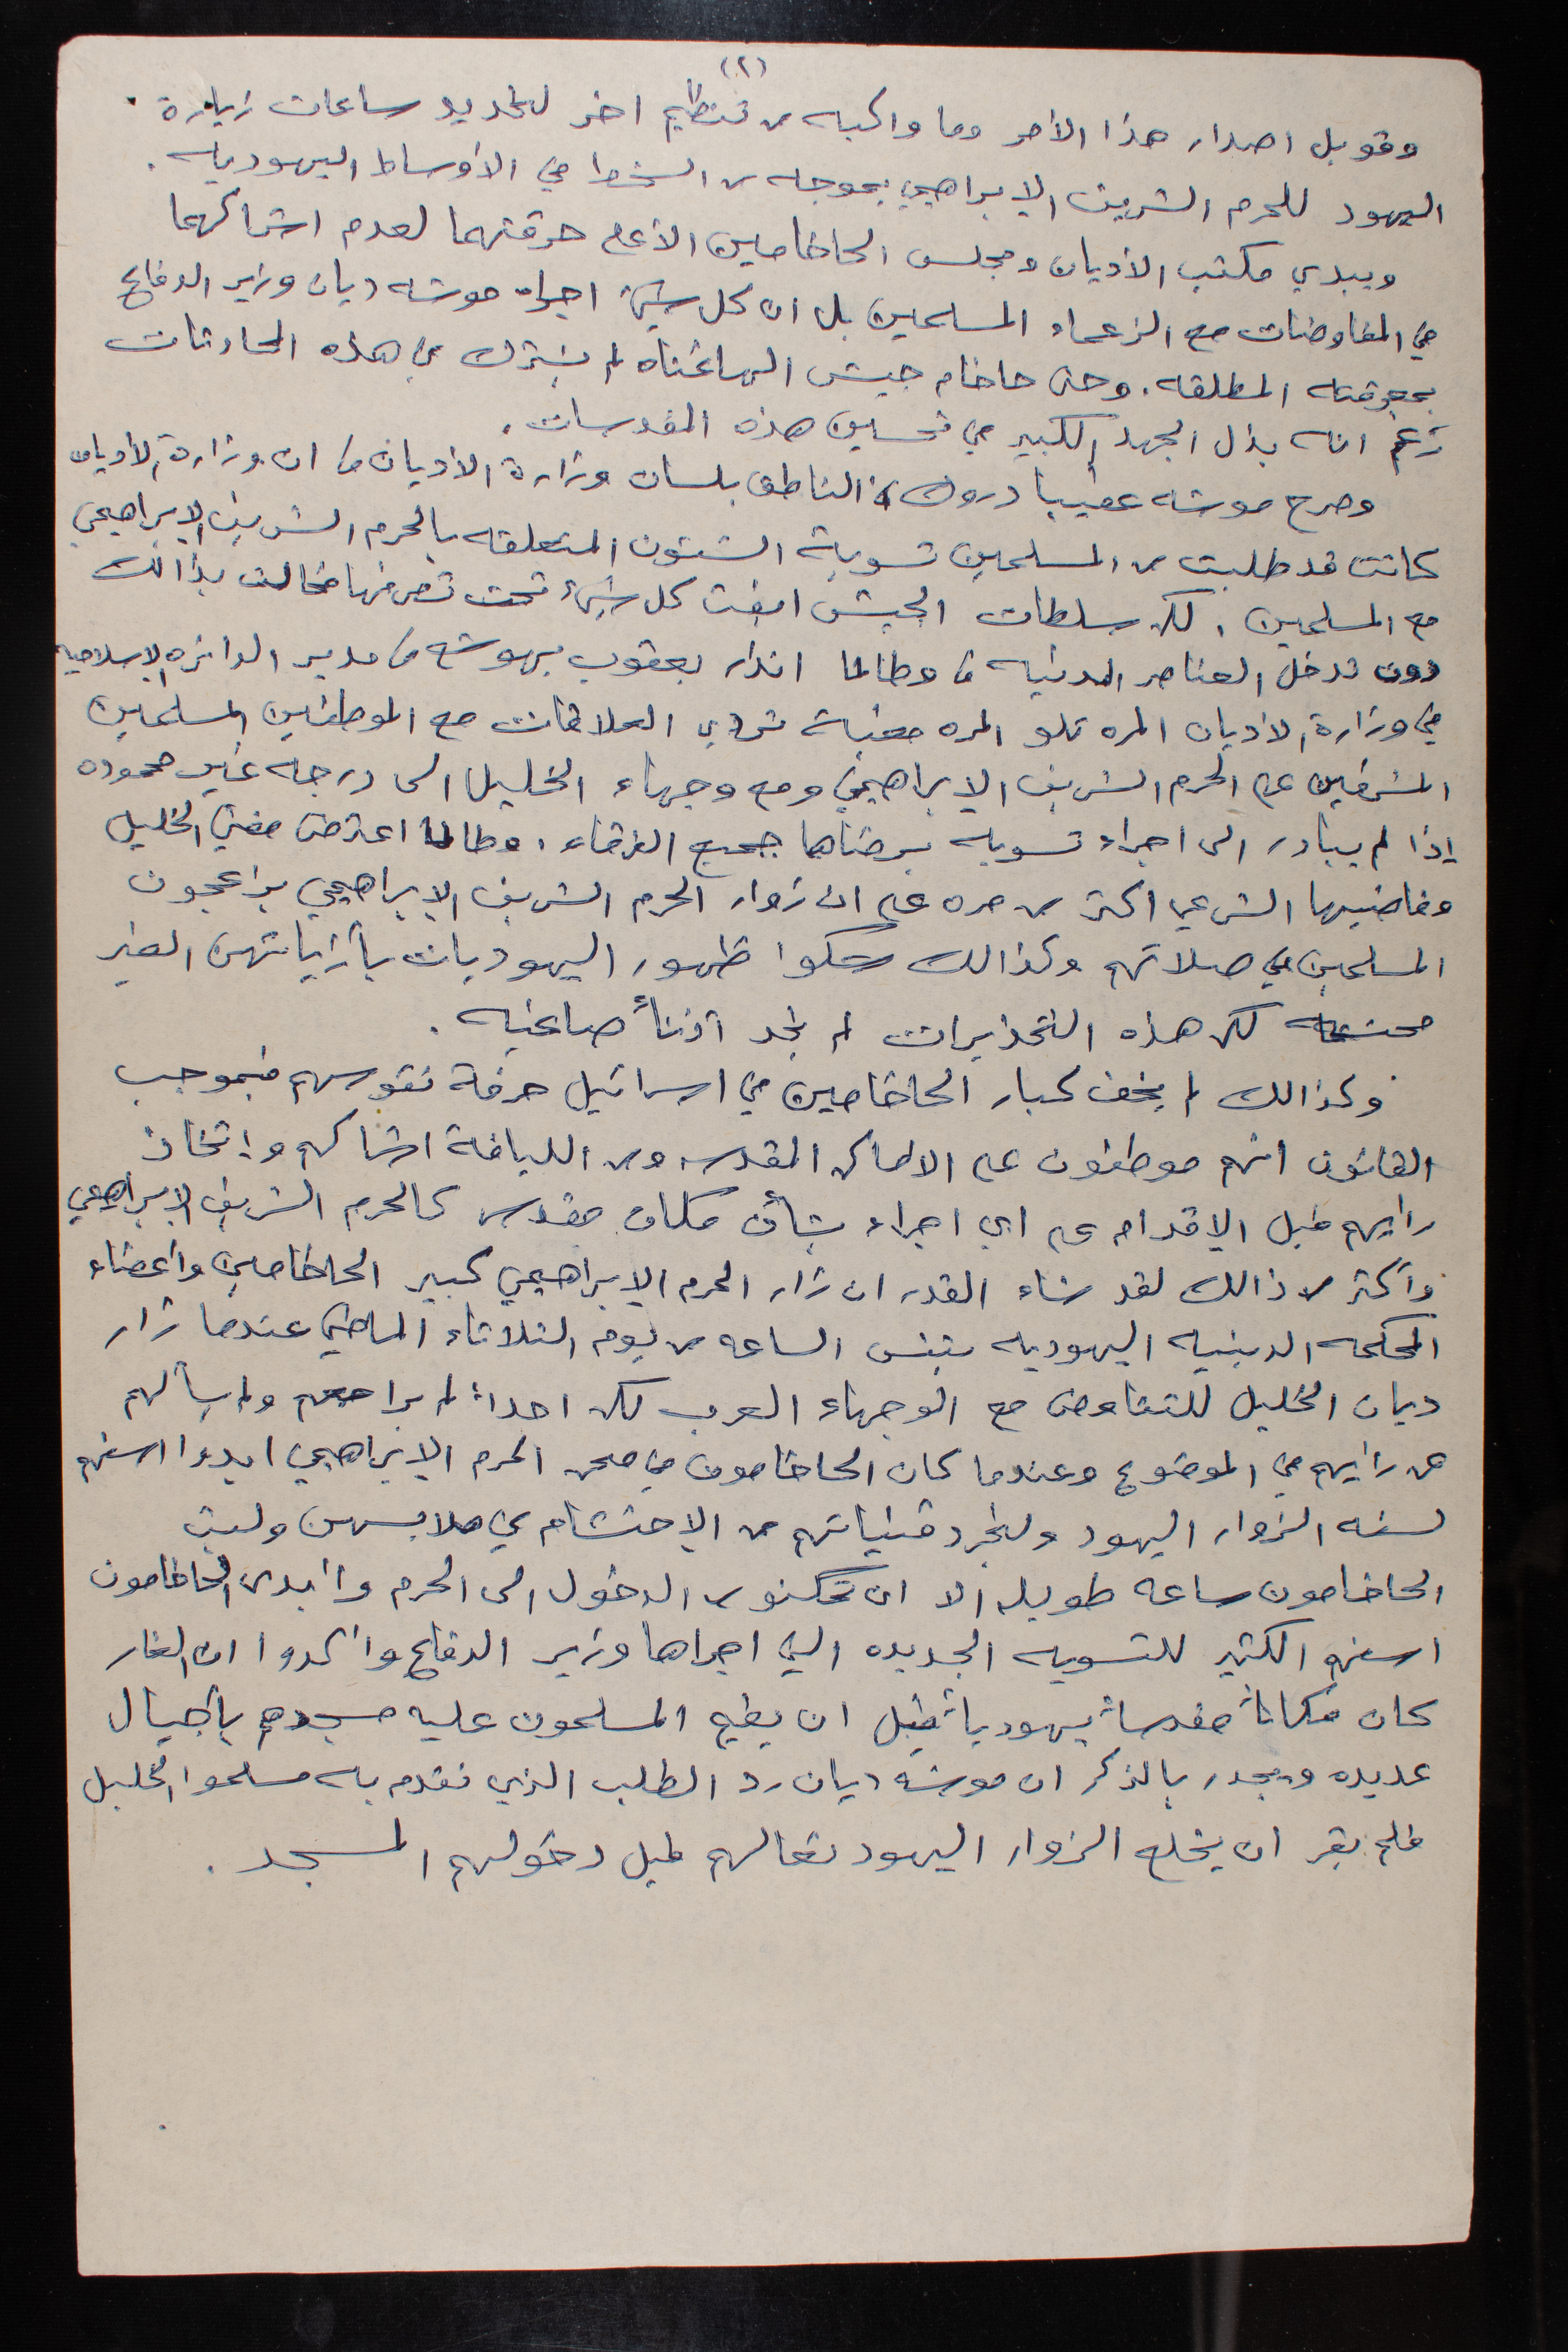 (٢)
وقوبل اصدار هذا الأمر وما واكبه من تنظيم اخر لتحديد ساعات زيارة
اليهود للحرم الشريف الإبراهيمي بموجه من السخط في الأوساط اليهوديه .
ويبدي مكتب الأديان ومجلس الحاخامين الأعلى حرقتهما لعدم اشراكهما
في المفاوضات مع الزعماء المسلمين بل ان كل شيئ اجراه موشه ديان وزير الدفاع
بمعرفته المطلقه . وحتى حاخام جيش الهاغناه لم يشترك في هذه المحادثات
رغم انه بذل الجهد الكبير في تحسين هذه المقدسات .
وصرح موشه عقيبا دروك ، الناطق بلسان وزارة الأديان ، ان وزارة الأديان
كانت قد طلبت من المسلمين تسوية الشئون المتعلقه بالحرم الشريف الإبراهيمي
مع المسلمين . لكن سلطات الجيش ابقت كل شيئ تحت تصرفها فحالت بذالك
دون تدخل العناصر المدنيه ، وطالما انذار يعقوب يهوشع ، مدير الدائره الإسلاميه
في وزارة الأديان المره تلو المره مغبة تردي العلاقات مع الموطنين المسلمين
المشرفين على الحرم الشريف الإبراهيمي ومع وجهاء الخليل الى درجه غير محموده
إذا لم يبادر الى اجراء تسويه يرضاها جميع الفرقاء . وطالما اعترض مفتي الخليل
وقاضيها الشرعي اكثر من مره على ان زوار الحرم الشريف الإبراهيمي يزاعجون
المسلمين في صلاتهم وكذالك شكوا ظهور اليهوديات بأزيائهن الغير
محتشمه لكن هذه التحذيرات لم تجد آذناً صاغيه .
وكذالك لم يخف كبار الحاخامين في اسرائيل حرقة نفوسهم فبموجب
القانون انهم موطنون على الاماكن المقدسه ومن اللياقة اشراكهم واتخاذ
رايهم قبل الإقدام على اي اجراء بشأن مكان مقدس كالحرم الشريف الإبراهيمي
وأكثر من ذالك لقد شاء القدر ان زار الحرم الإبراهيمي كبير الحاخامين وأعضاء
المحكمه الدينيه اليهوديه بنفس الساعه من يوم الثلاثاء الماضي عندما زار
ديان الخليل للتفاوض مع الوجهاء العرب لكن احداً لم يراجعهم ولم يسألهم
عن رايهم في الموضوع وعندما كان الحاخامون في صحن الحرم الإبراهيمي ابدوا اسفهم
لسفه الزوار اليهود ولتجرد فتياتهم من الإحتشام في ملابسهن ولبث
الحاخامون ساعه طويله الا ان تمكنو من الدخول الى الحرم وأبدى الحاخامون
اسفهم الكثير للتسويه الجديده التي اجراها وزير الدفاع وأكدوا ان الغار
كان مكاناً مقدساً يهودياً قبل ان يقيم المسلمون عليه مسجدهم بأجيال
عديده ويجدر بالذكر ان موشه ديان رد الطلب الذي تقدم به مسلموا الخليل
فلم يقر ان يخلع الزوار اليهود نعالهم قبل دخولهم المسجد .